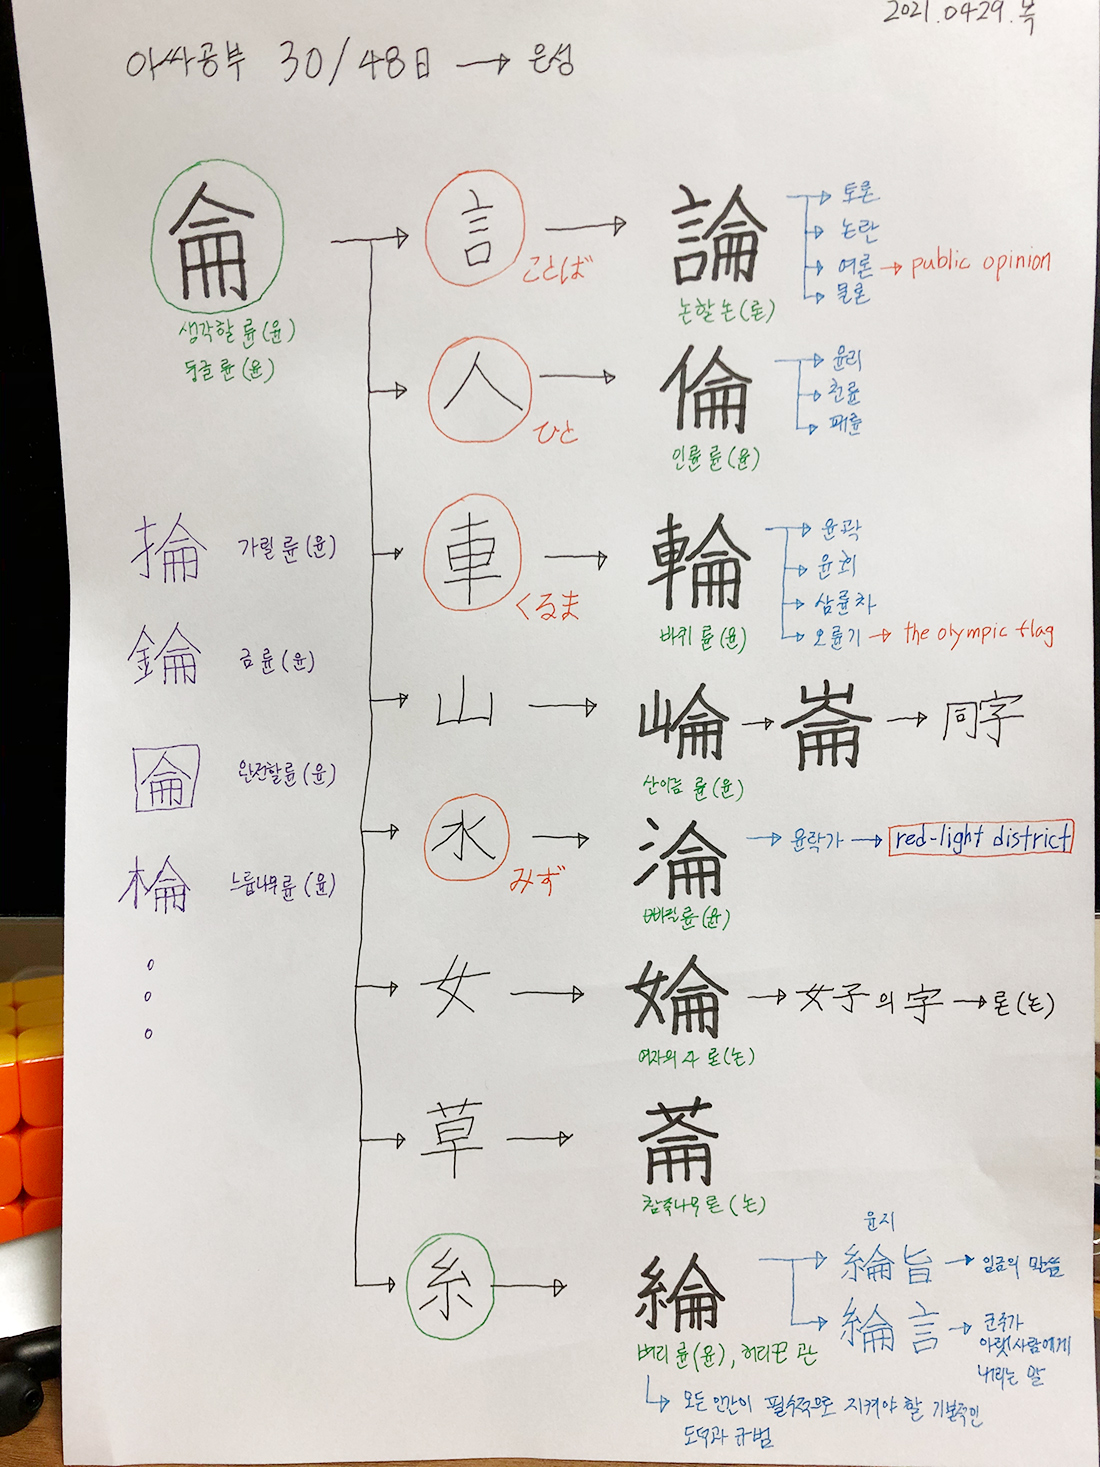 2021.04.29.목
아싸공부 30/48日 → 은성
侖
생각할 륜(윤)
둥글 륜(윤)
言 ことば → 論
논할 논(론)
→ 토론
→ 논란
→ 여론 → public opinion
→ 물론
人 ひと → 倫
인륜 륜(윤)
→ 윤리
→ 천륜
→ 패륜
車 くるま → 輪
바퀴 륜(윤)
→ 윤곽
→ 윤회
→ 삼륜차
→ 오륜기 → the olympic flag
山 → 崘 → 崙 → 同字
산이름 륜(윤)
水 みず → 淪 → 윤락가 → red-light district
빠질 륜(윤)
女 → 婨 → 女子의 字 → 론(논)
여자의 자 론(논)
草 → 菕
참죽나무 론(논)
糸 → 綸
벼리 륜(윤), 허리끈 관
윤지
→ 綸旨 → 임금의 말씀
→ 綸言 → 군주가
아랫사람에게
내리는 말
→ 모든 인간이 필수적으로 지켜야 할 기본적인
도덕과 규범
掄 가릴 륜(윤)
錀 금 륜(윤)
圇 완전할 륜(윤)
棆 느릅나무 륜(윤)